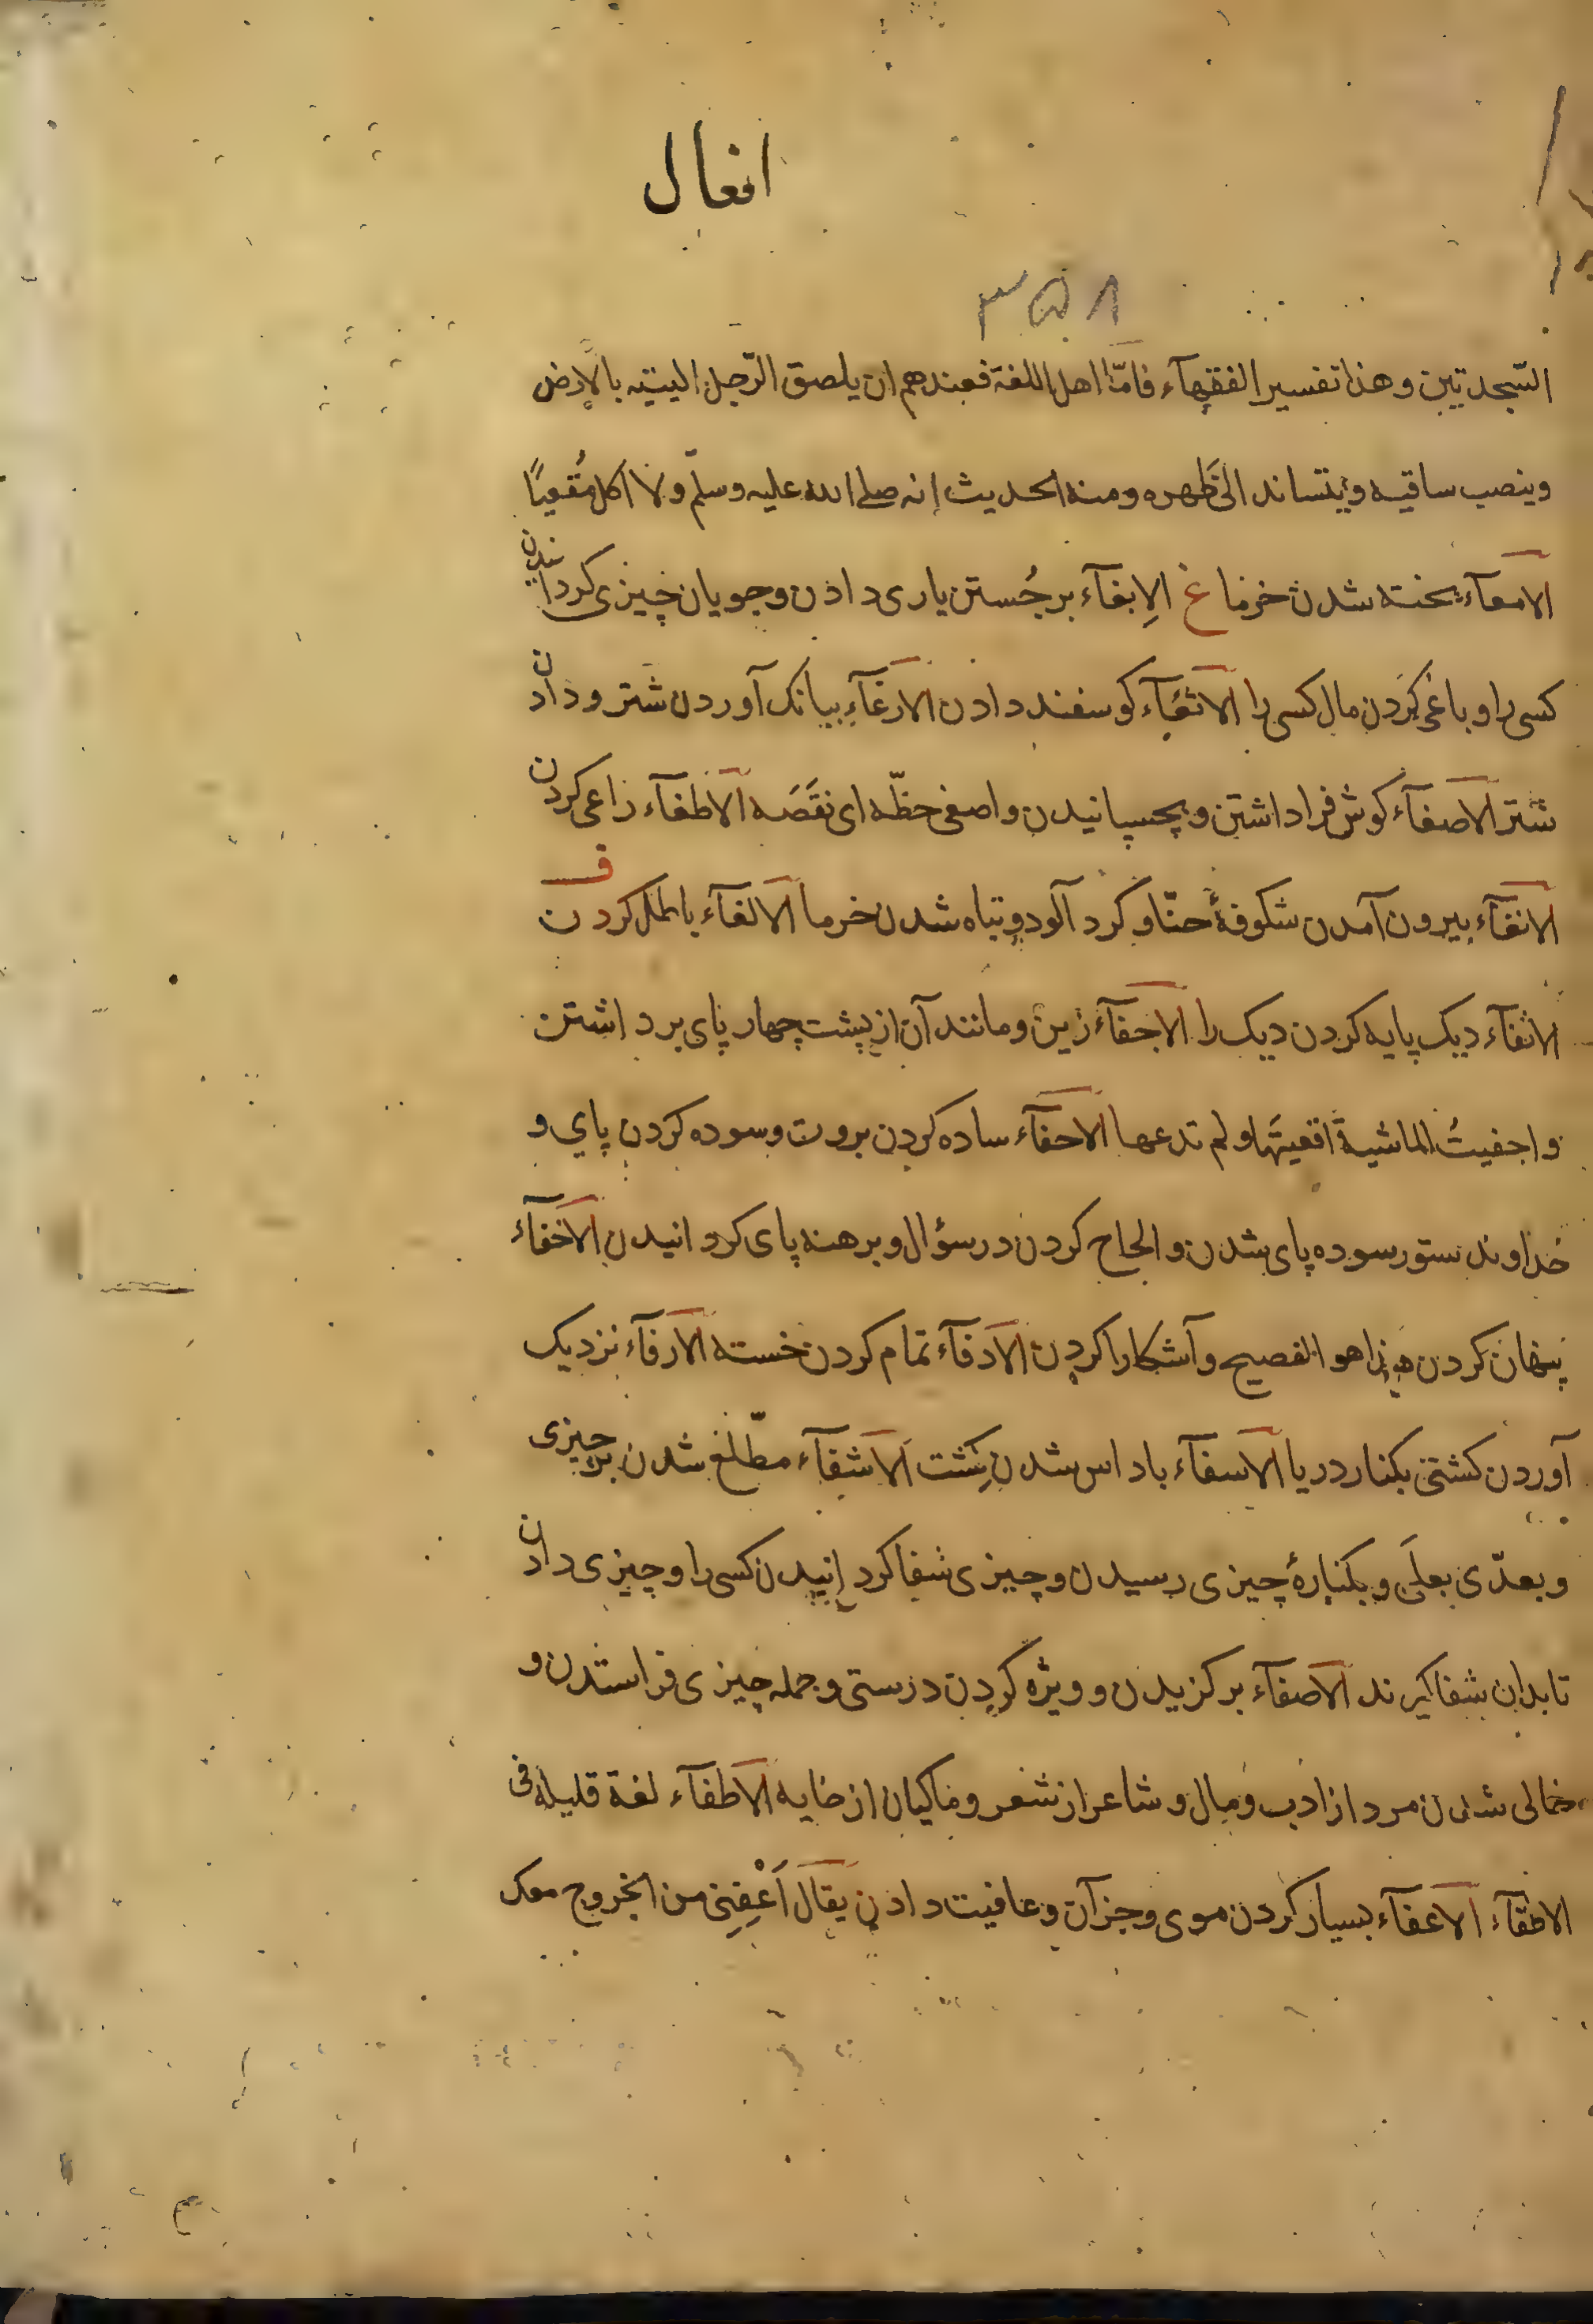 افعال
٣٥٨
السّجدتین وهذا تفسیر الفقهآء فامّا اهل اللغة فعندهم ان یلصق الرّجل الیتیه بالارض
وینصب ساقیه ویتساند الی ظهره ومنه الحدیث انه صلی الله علیه وسلّم ولا اکل مُقعیًا
الامعآء پخته شدن خرما غ الاِبغآء بر جُستن یاری دادن وجویان چیزی کردانیدن
کسی را و باغی کردن مال کسی را الاثغآء کوسفند دادن الارغآء ببانک آوردن شتر و دادن
شتر الاصغآء کوش فرا داشتن و بچسپانیدن واصغی حظّه ای نقَصَه الاطغآء زاعی کردن
الانغآء بیرون آمدن شکوفهٔ حنّا و کرد آلود و تباه شدن خرما الالغآء باطل کردن ف
الاثفآء دیک پایه کردن دیک را الاجفآء زین و مانند آن از پشت چهار پای برداشتن
واجفیتُ الماشیةَ اتعبتَها ولم تدعها الاحفآء ساده کردن بروت و سوده کردن پای و
خداوند ستور سوده پای شدن و الحاح کردن در سؤال و برهنه پای کردانیدن الاخفآء
پنهان کردن هذا هو الفصیح و آشکارا کردن الادفآء تمام کردن خسته الارفآء نزدیک
آوردن کشتی بکنار دریا الاسفآء با داس شدن کِشت الاشفآء مطّلع شدن بر چیزی
و یعدّی بعلَی و بکنارهٔ چیزی رسیدن و چیزی شفا کردانیدن کسی را و چیزی دادن
تا بدان شفا کیرند الاصفآء برکزیدن و ویژه کردن دوستی و جمله چیزی فراستدن و
خالی شدن مرد از ادب و مال و شاعر از شعر و ماکیان از خایه الاطفآء لغة قلیلة فی
الاطفآء الاعفآء بسیار کردن موی و جز آن و عافیت دادن یقال اَعْفِنِی من الخروج معک